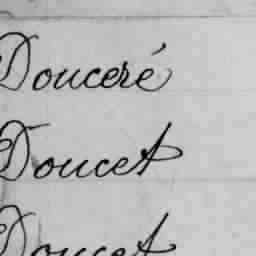 Douceré
Doucet
Doucet